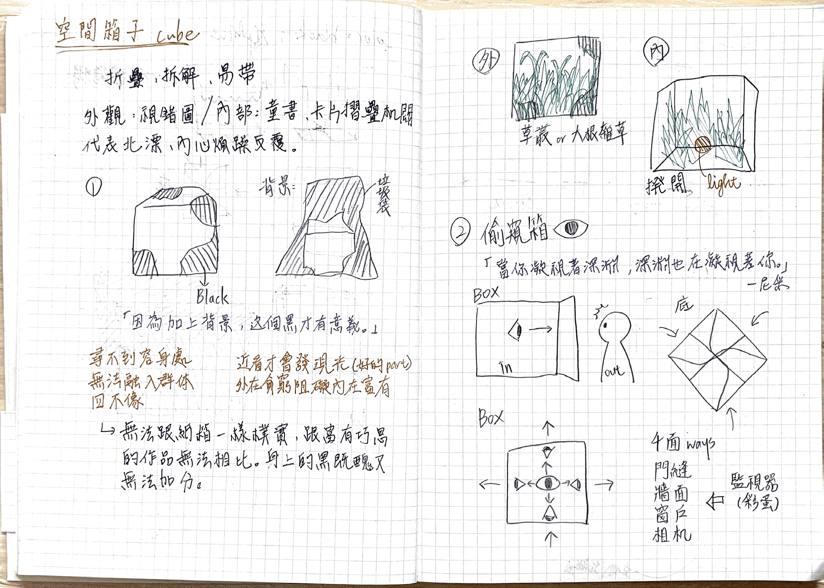 空間箱子 cube
折疊、拆解、易帶
外觀:視錯圖/內部:童書、卡片摺疊机關
代表北漂、內心煩躁反覆。
①
背景:
垃圾袋
Black
「因為加上背景,这個黑才有意義。」
尋不到容身處
無法融入群体
四不像
近看才會發現光(好的part)
外在貧窮阻礙內在富有
↳無法跟紙箱一樣樸實,跟富有巧思
的作品無法相比。身上的黑既醜又
無法加分。
外
草叢 or 大根雜草
內
撥開
light
② 偷窺箱
「當你凝視著深淵,深淵也在凝視著你。」
—尼采
BOX
In
out
底
BOX
4面 ways
門縫
牆面
窗戶
相机
監視器
(彩蛋)